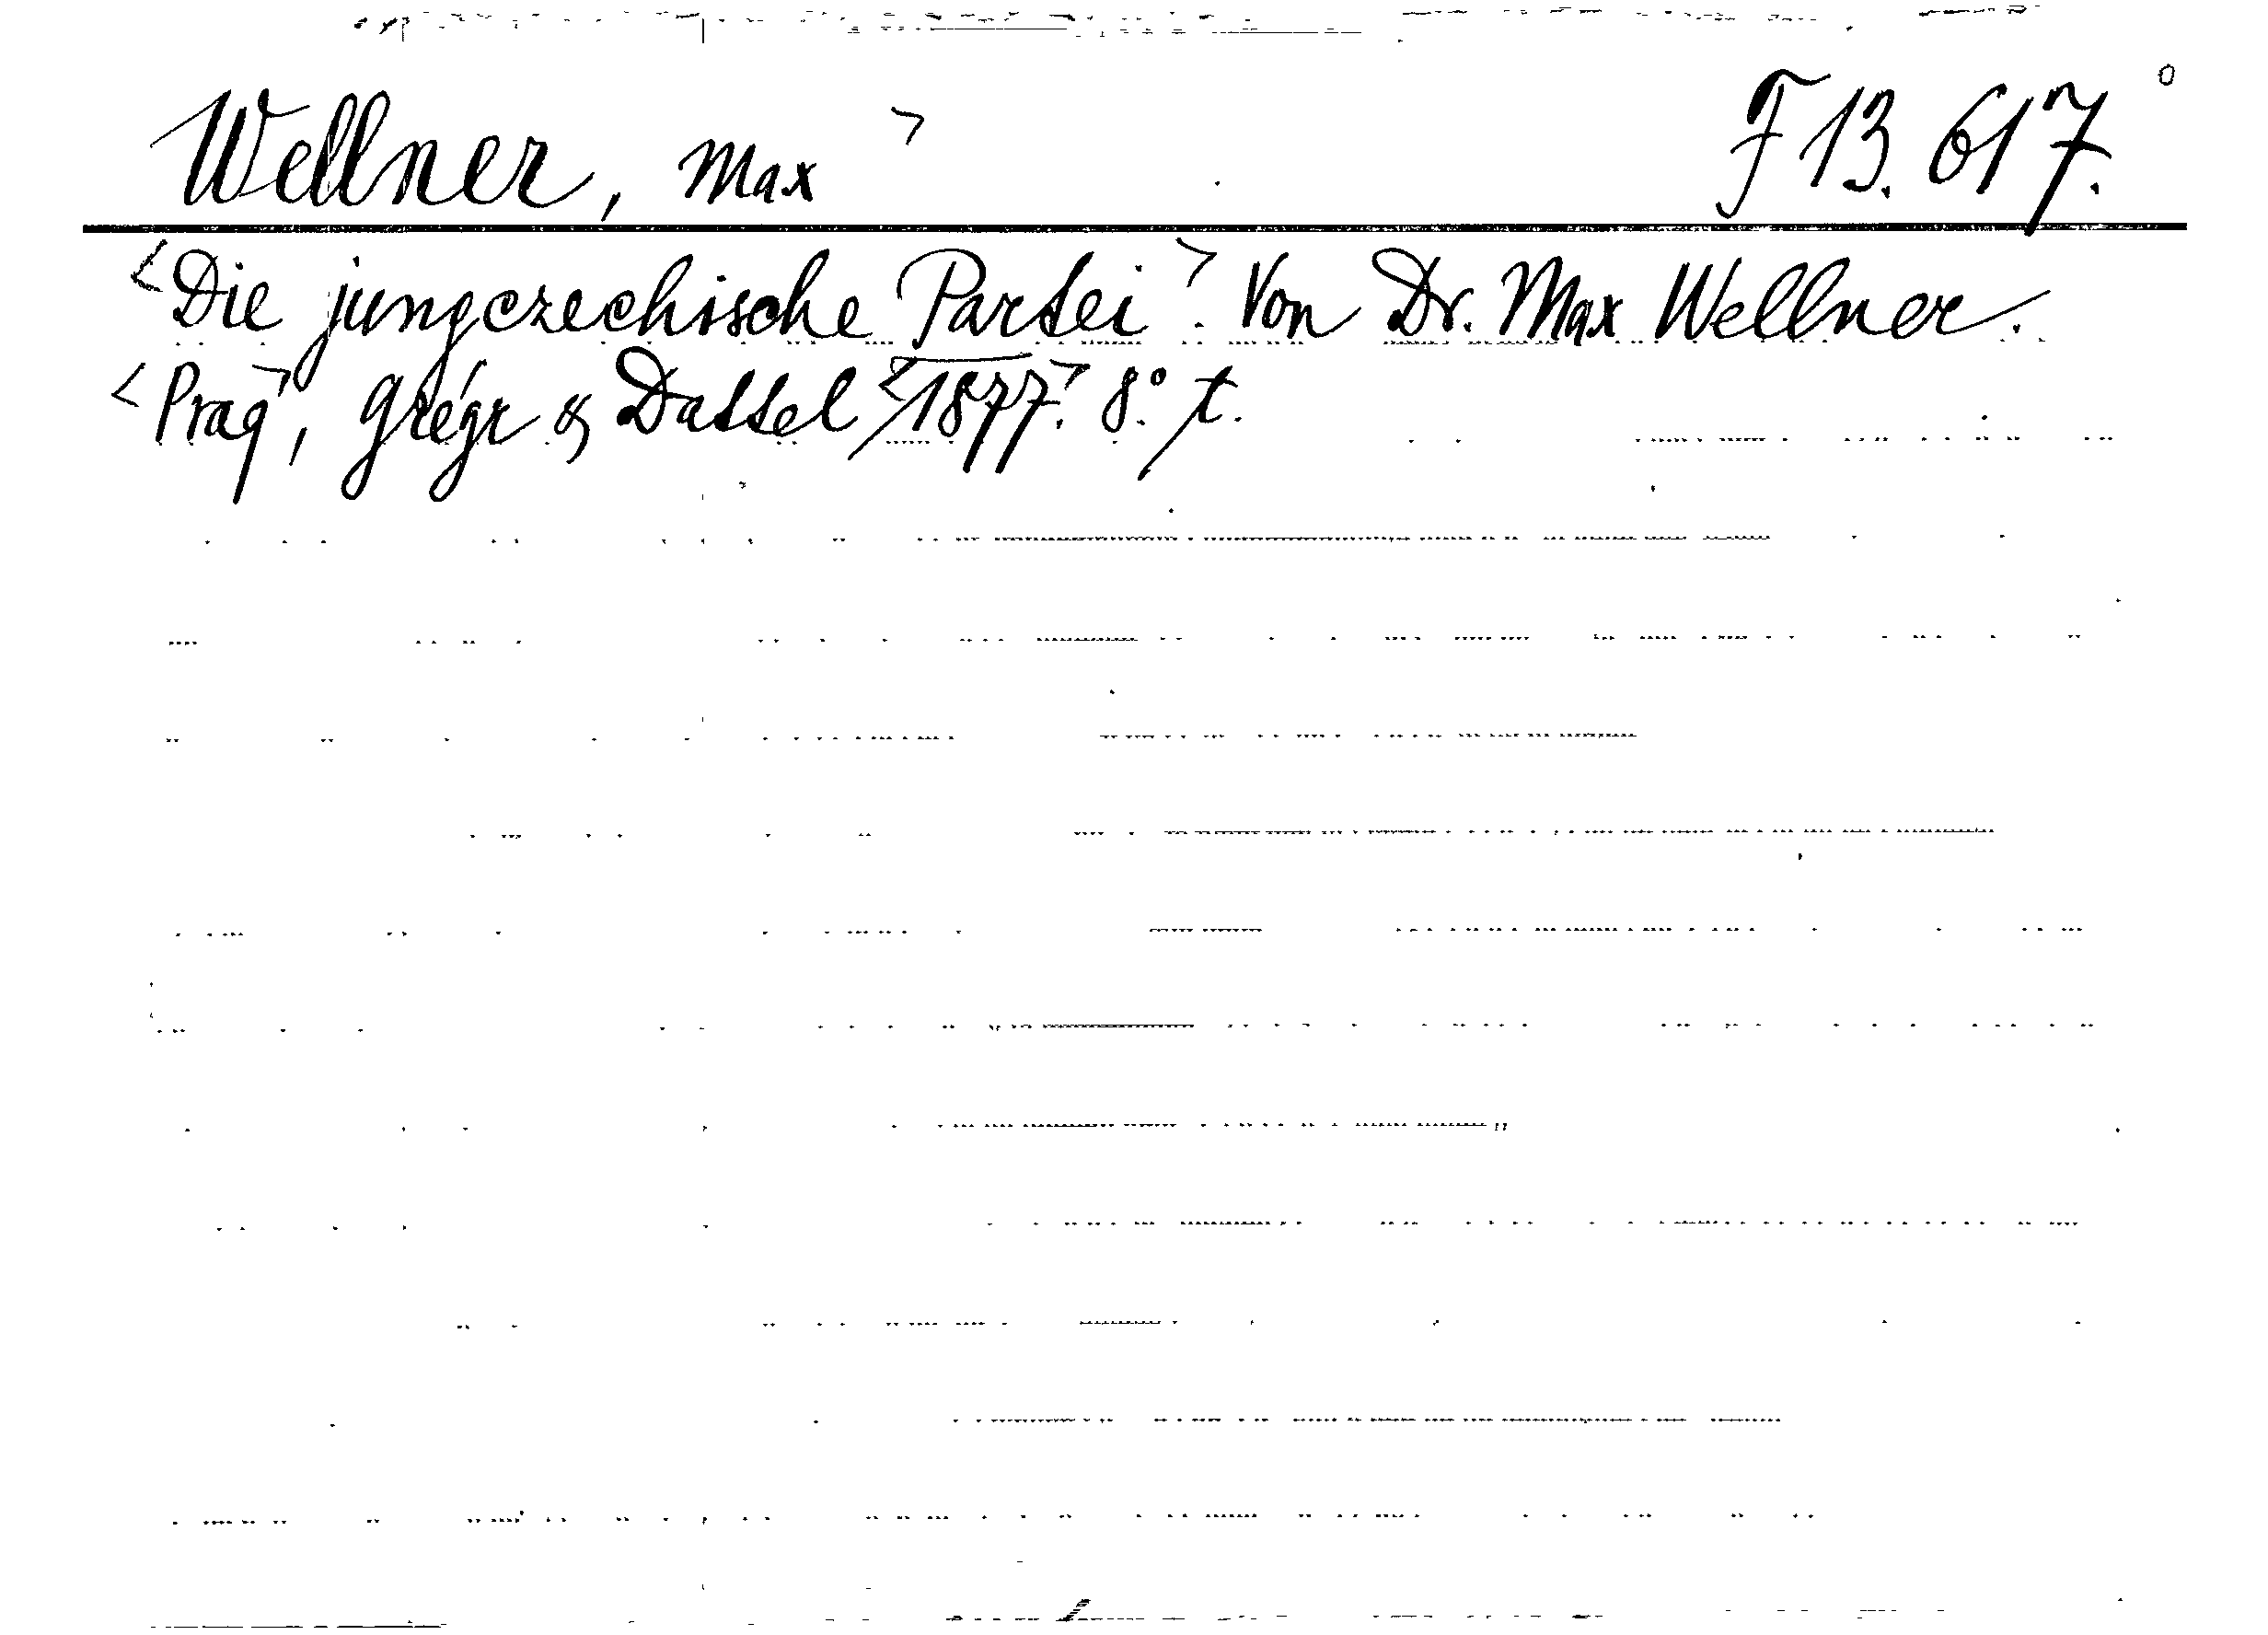 Wellner, Max > F 13.617.
<Die jungczechische Partei>. Von Dr. Max Wellner.
<Prag>, Grégr & Dattel <1877.> 8.° t.